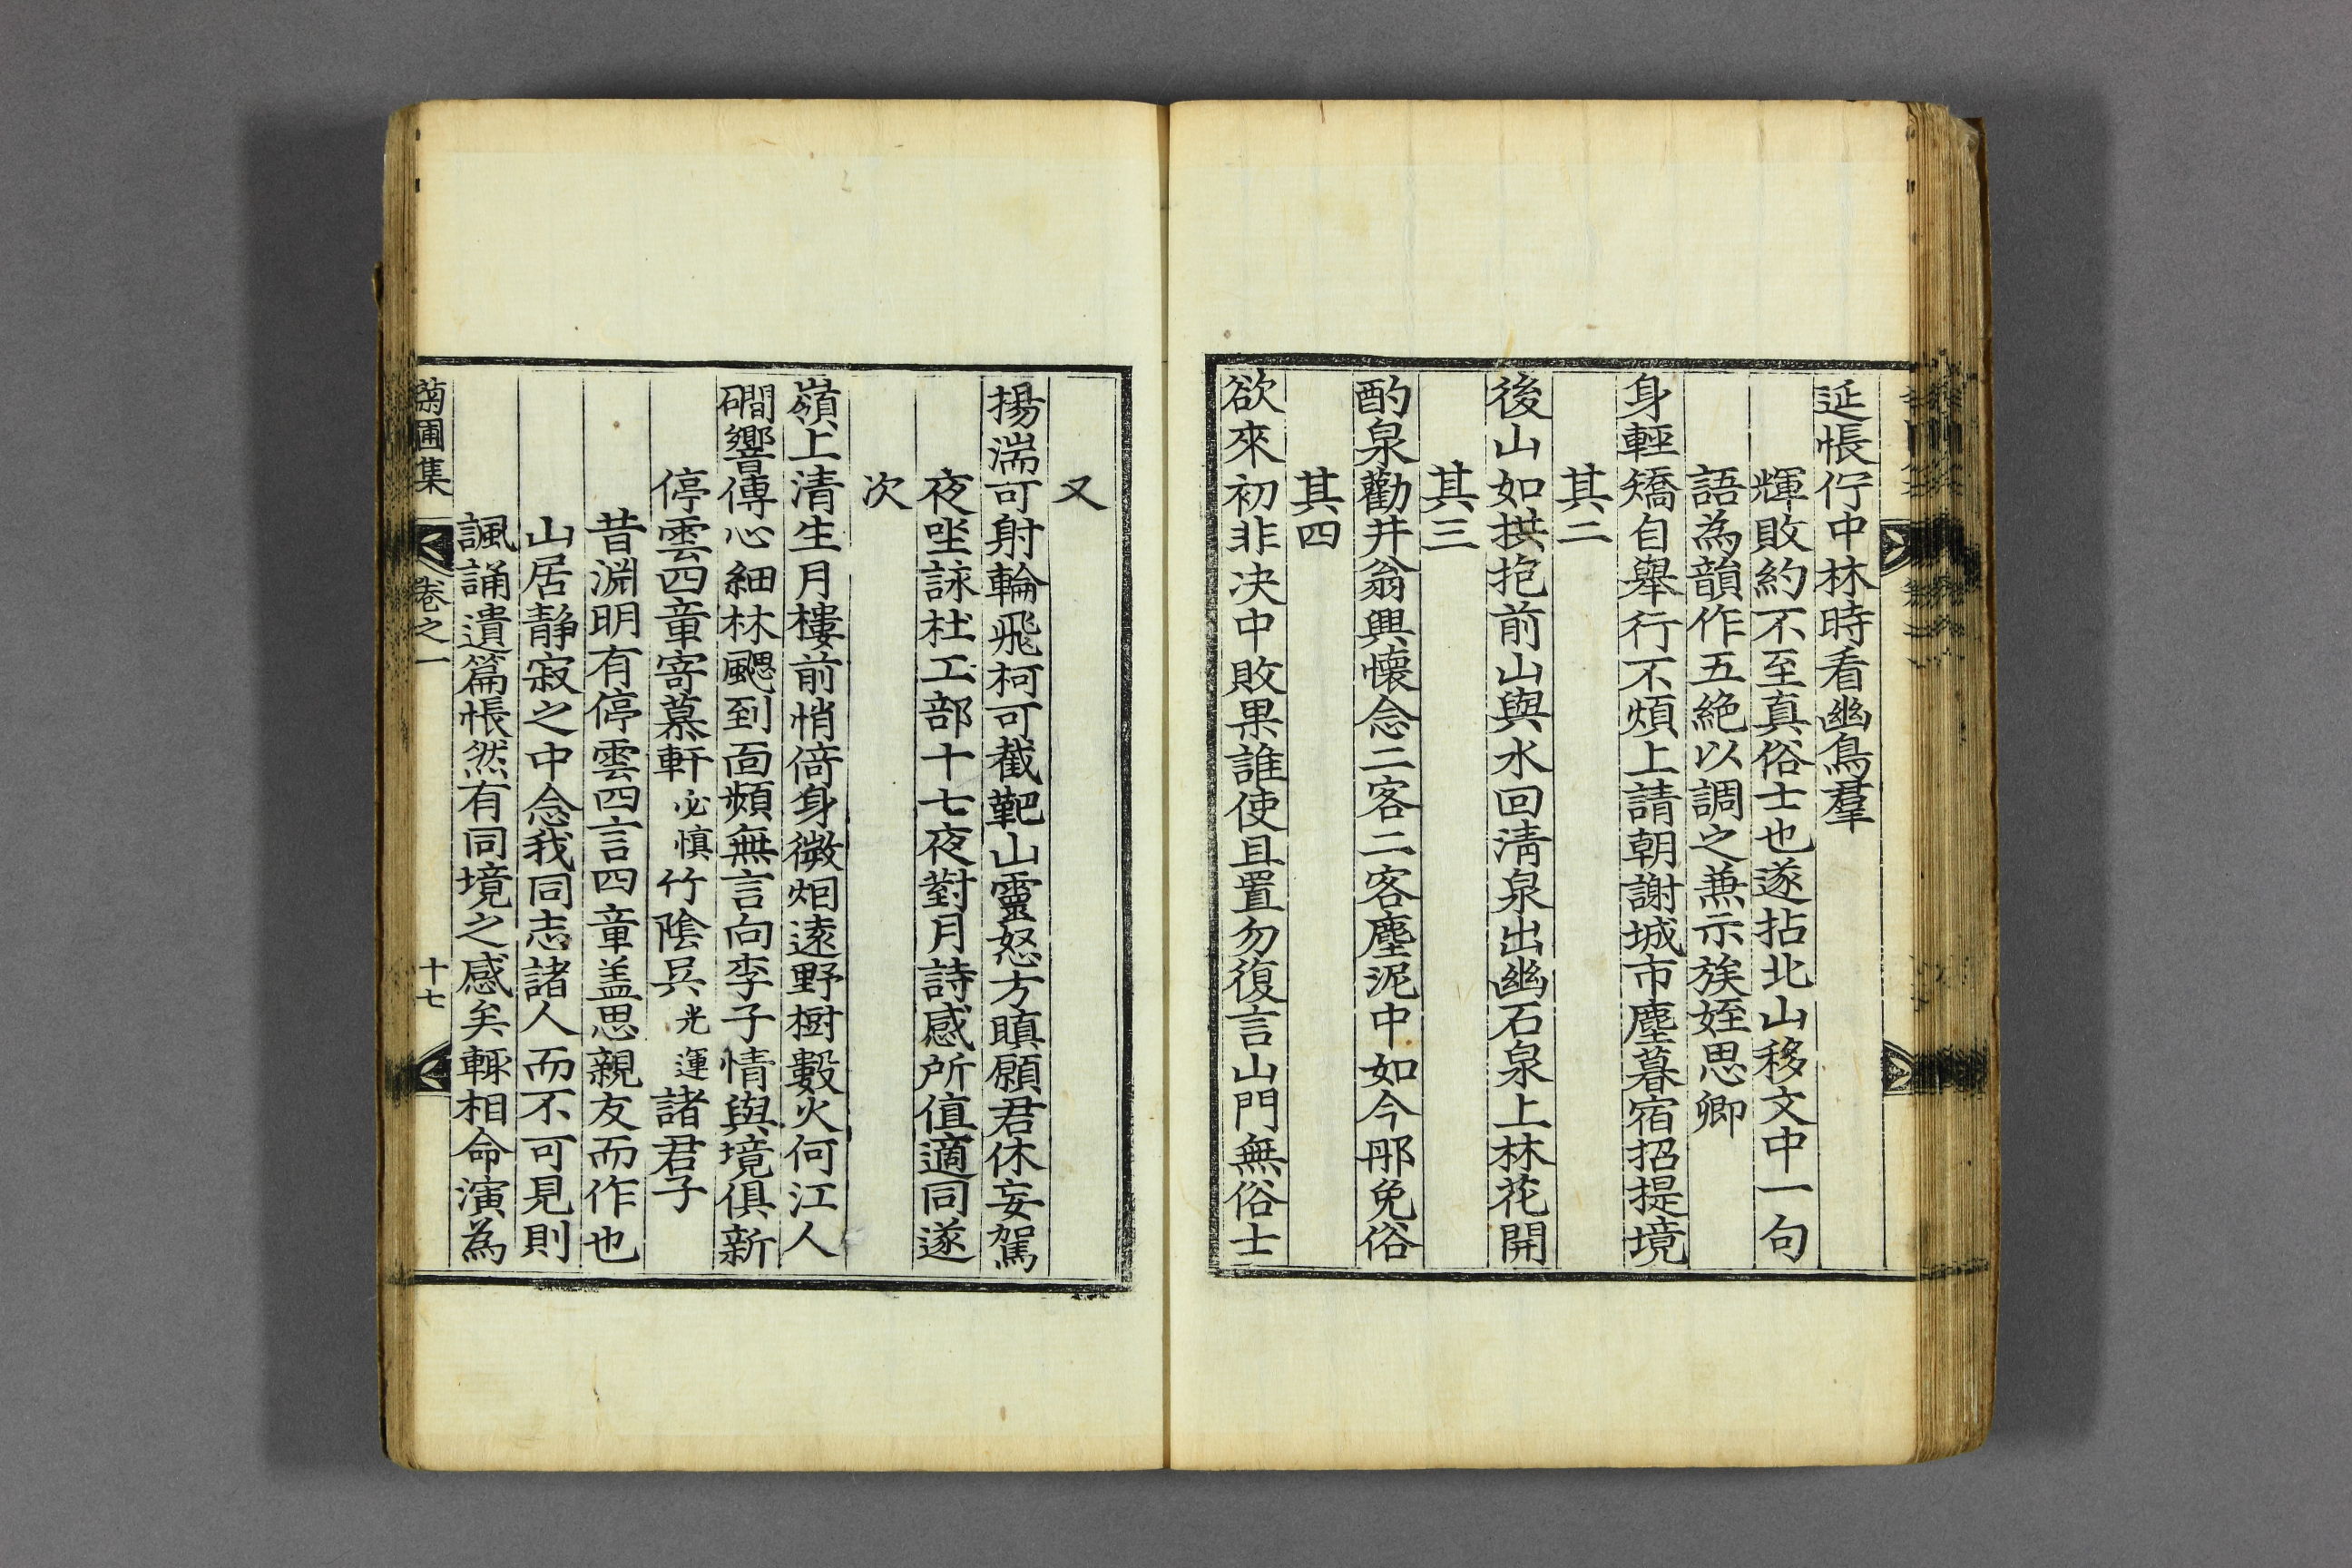 延悵佇中林時看幽鳥羣
輝敗約不至真俗士也遂拈北山移文中一句
語為韻作五絶以調之兼示族姪思卿
身輕矯自舉行不煩上請朝謝城市塵暮宿招提境
其二
後山如拱抱前山與水回淸泉出幽石泉上林花開
其三
酌泉勸井翁興懷念二客二客塵泥中如今那免俗
其四
欲來初非决中敗果誰使且置勿復言山門無俗士
又
揚湍可射輪飛柯可截靶山靈怒方瞋願君休妄駕
夜坐詠杜工部十七夜對月詩感所値適同遂
次
嶺上清生月樓前悄倚身微烟遠野樹數火何江人
磵響傳心細林颸到面頻無言向李子情與境俱新
停雲四章寄慕軒必愼竹陰吳光運諸君子
昔淵明有停雲四言四章盖思親友而作也
山居静寂之中念我同志諸人而不可見則
諷誦遺篇悵然有同境之感矣輒相命演為
菊圃集 卷之一 十七